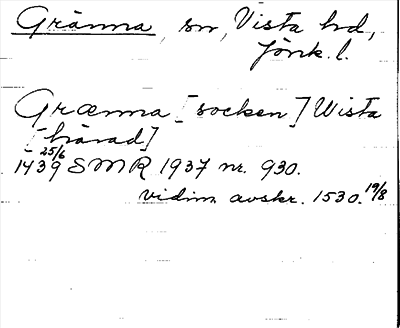 Gränna, sn, Vista hd,
Jönk. l.
Grænna [socken] Wista
[härad]
25/6
1439 SMR 1937 nr. 930.
vidim. avskr. 1530. 19/8